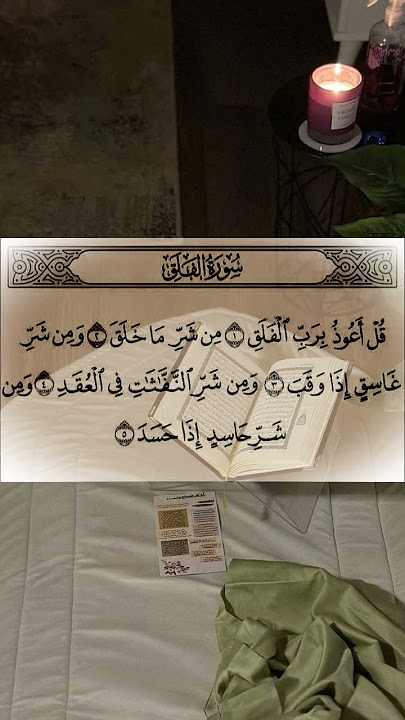 سُورَةُ الفَلَقِ
قُلْ أَعُوذُ بِرَبِّ ٱلْفَلَقِ ١ مِن شَرِّ مَا خَلَقَ ٢ وَمِن شَرِّ
غَاسِقٍ إِذَا وَقَبَ ٣ وَمِن شَرِّ ٱلنَّفَّٰثَٰتِ فِى ٱلْعُقَدِ ٤ وَمِن
شَرِّ حَاسِدٍ إِذَا حَسَدَ ٥